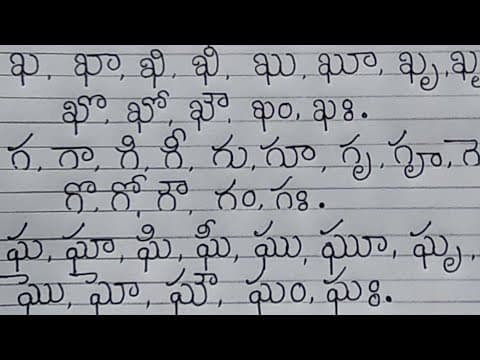 ఖ, ఖా, ఖి, ఖీ, ఖు, ఖూ, ఖృ,
ఖొ, ఖో, ఖౌ, ఖం, ఖః.
గ, గా, గి, గీ, గు, గూ, గృ, గౄ,
గొ, గో, గౌ, గం, గః.
ఘ, ఘా, ఘి, ఘీ, ఘు, ఘూ, ఘృ,
ఘొ, ఘో, ఘౌ, ఘం, ఘః.